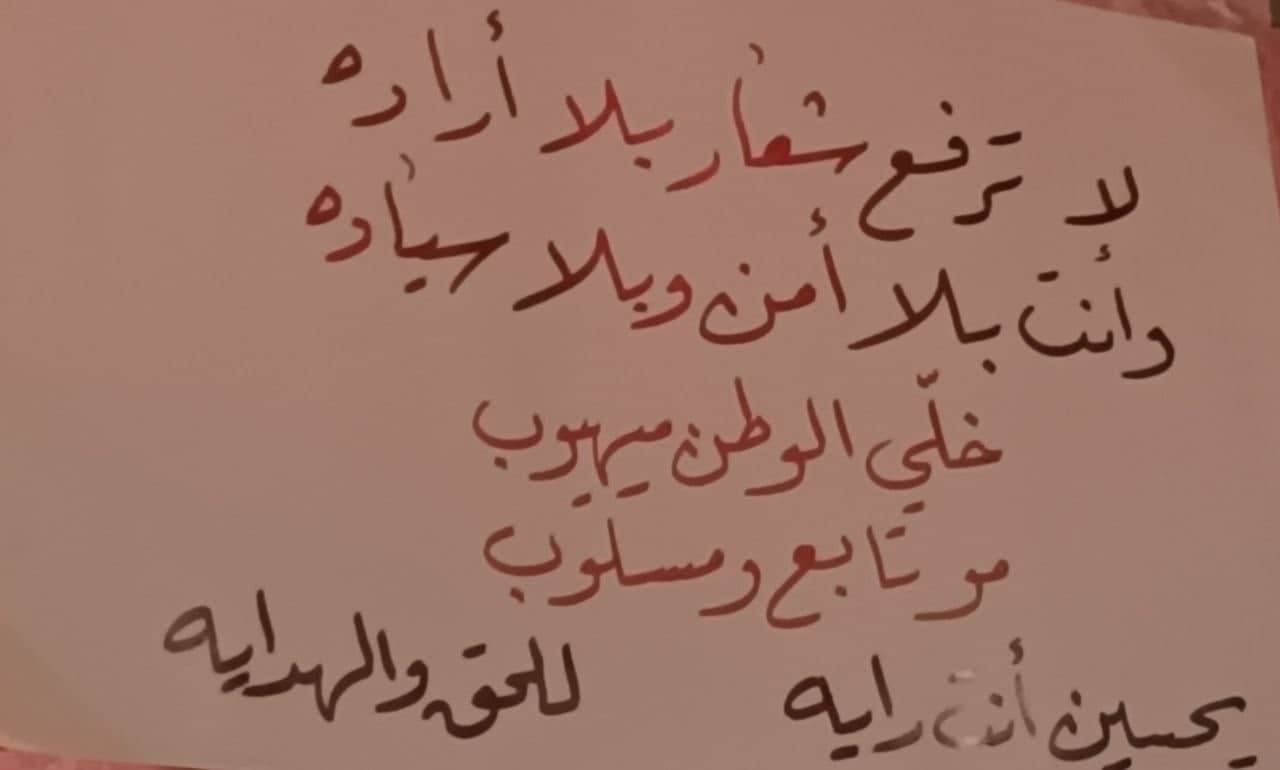 لا ترفع شعار بلا أراده
وأنت بلا أمن وبلا سياده
خلّي الوطن ميهيوب
مو تابع ومسلوب
يحسين أنت رايه للحق والهدايه